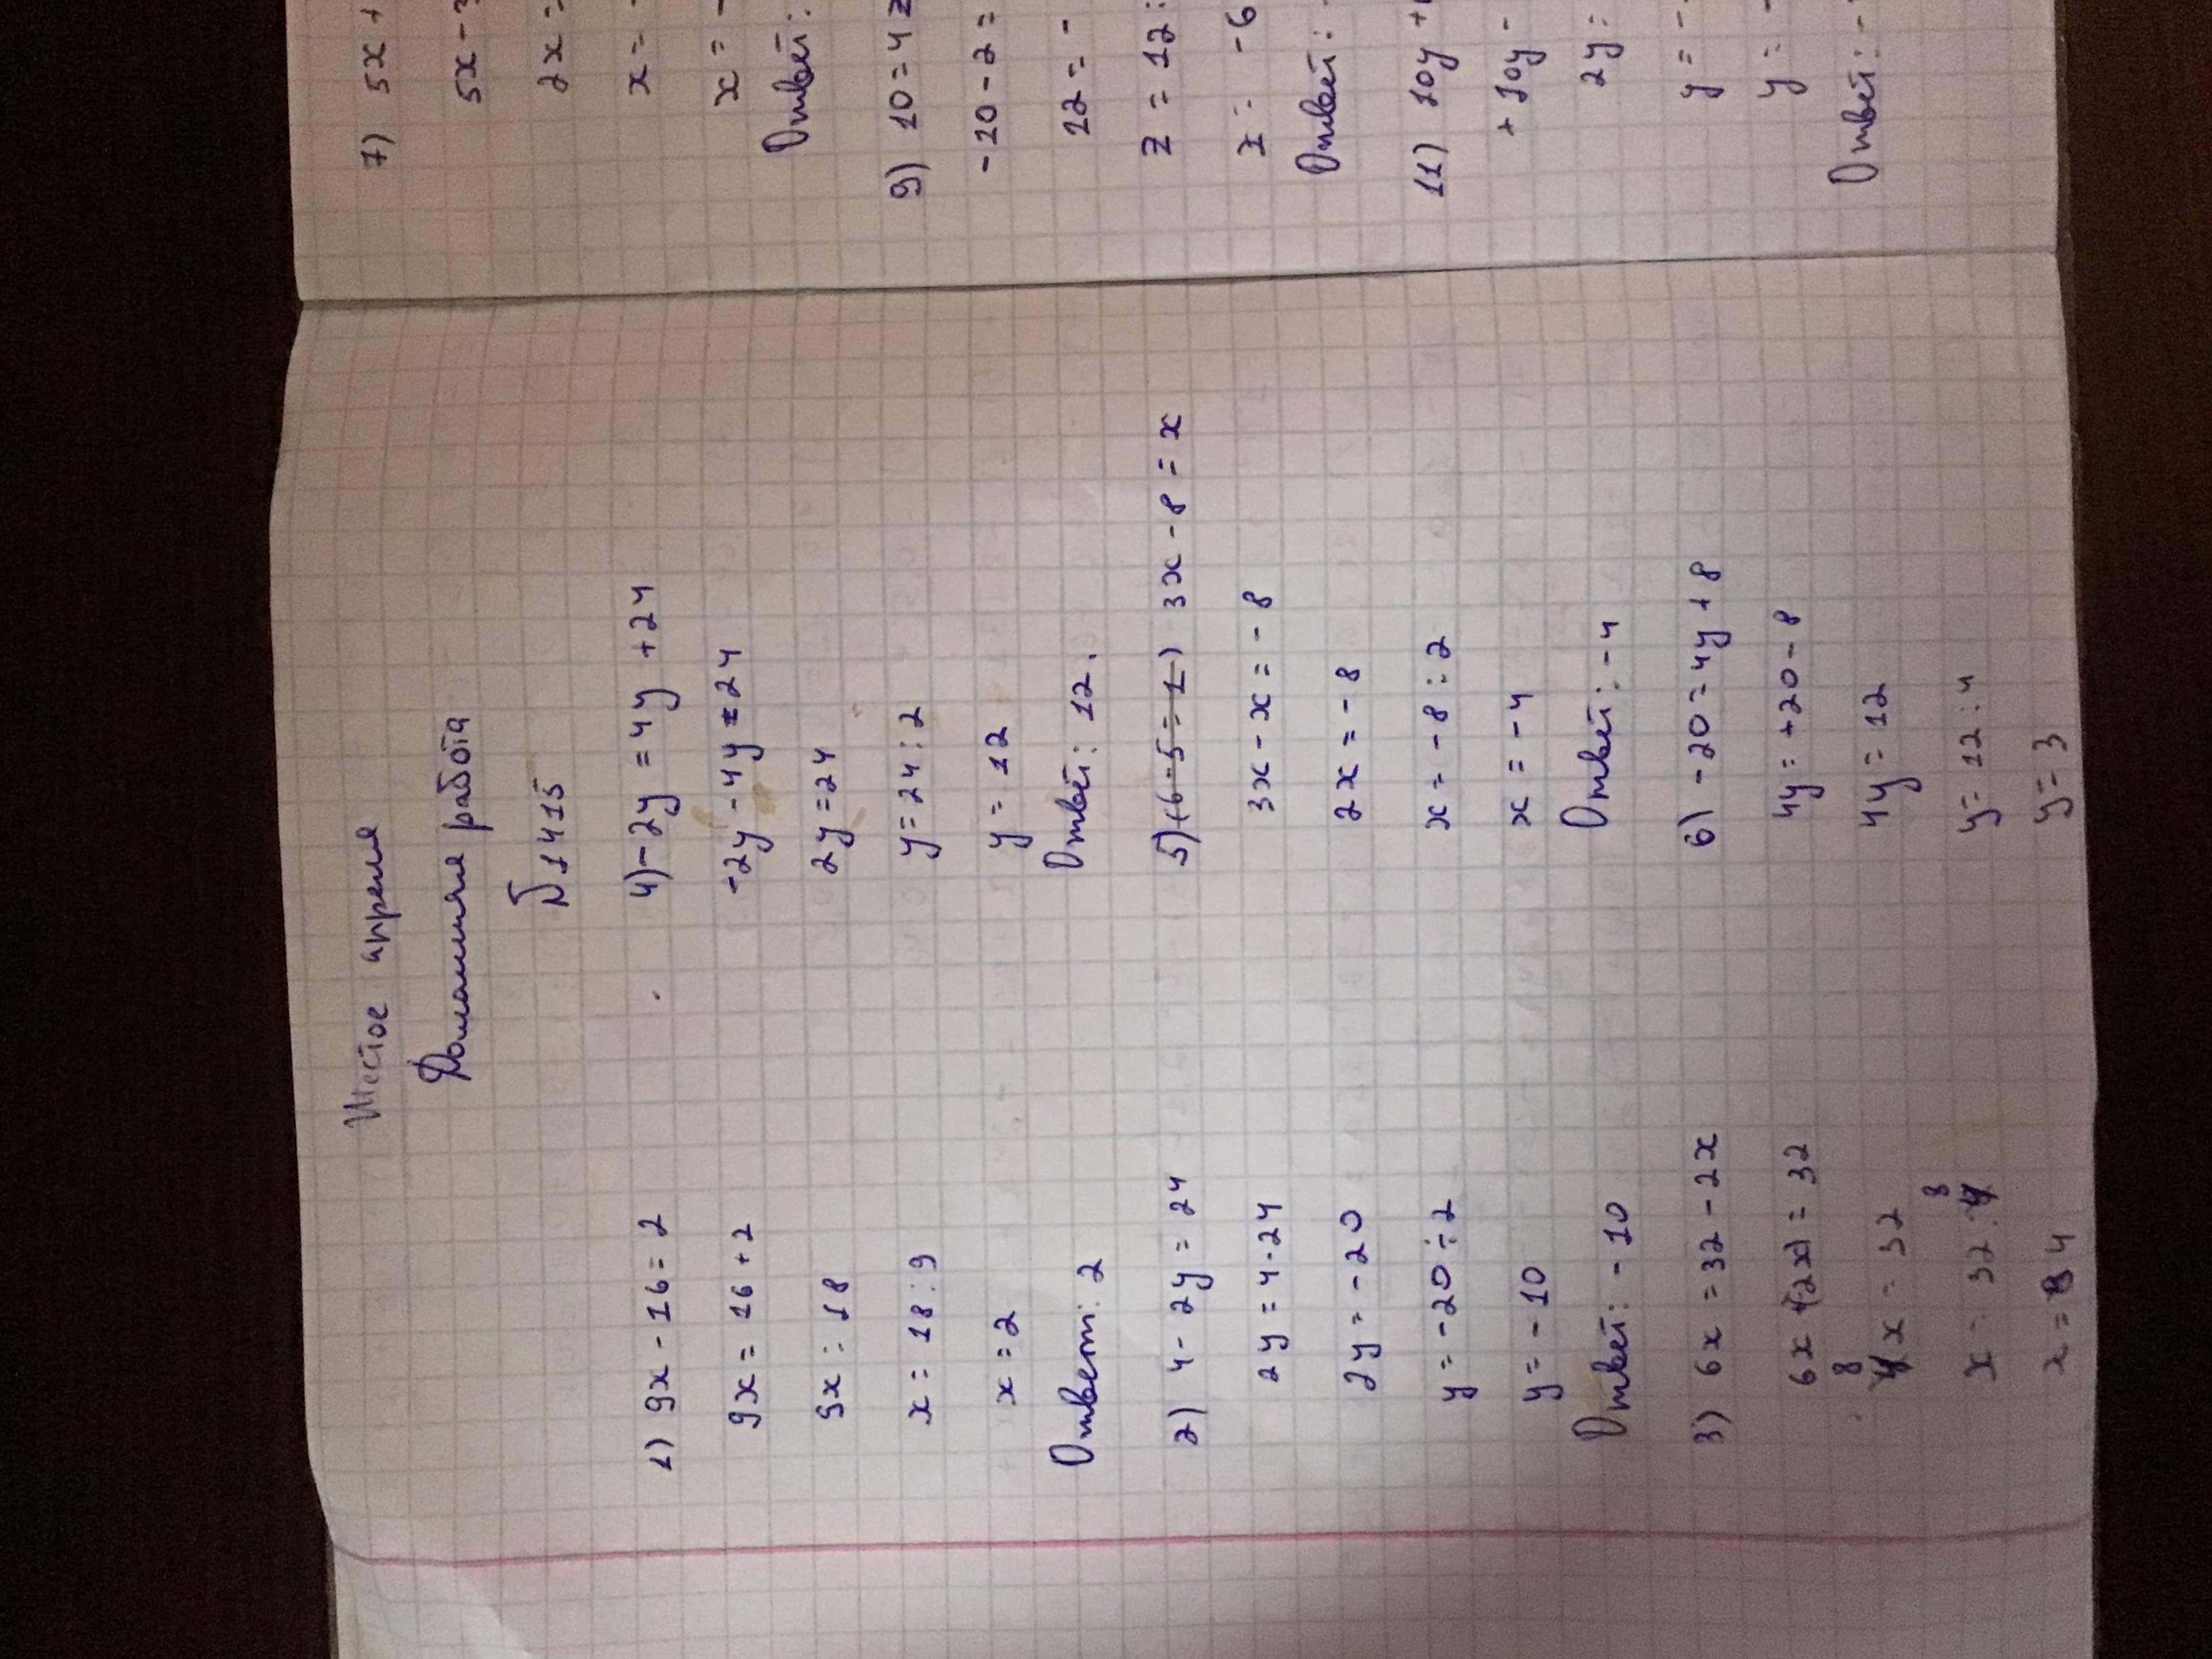 Шестое апреля
Домашняя работа
№1415
1) 9x - 16 = 2
9x = 16 + 2
9x = 18
x = 18 : 9
x = 2
Ответ: 2
2) 4 - 2y = 24
2y = 4 - 24
2y = -20
y = -20 ÷ 2
y = -10
Ответ: -10
3) 6x = 32 - 2x
6x + 2x = 32
8x = 32
x = 32 : 8
x = 4
4) -2y = 4y + 24
-2y - 4y = 24
2y = 24
y = 24 : 2
y = 12
Ответ: 12.
5) (6-5=1) 3x - 8 = x
3x - x = -8
2x = -8
x = -8 : 2
x = -4
Ответ: -4
6) -20 = 4y + 8
4y = +20 - 8
4y = 12
y = 12 : 4
y = 3
7) 5x +
5x - 3
2x =
x = -
x = -
Ответ:
9) 10 = 4z
-10 - 2 =
12 = -
z = 12 :
z = -6
Ответ:
11) 10y +
+10y -
2y =
y = -
y = -
Ответ: -